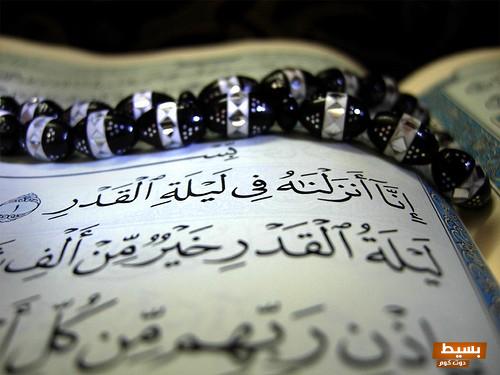 إِنَّا أَنزَلْنَٰهُ فِى لَيْلَةِ ٱلْقَدْرِ ١
لَيْلَةُ ٱلْقَدْرِ خَيْرٌ مِّنْ أَلْفِ
رَبِّهِم مِّن كُلِّ
بسيط
دوت كوم